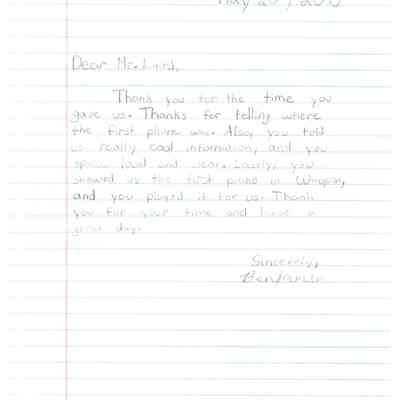 May 20, 200
Dear Mr.
Thank you for the time you
gave us. Thanks for telling where
the first phone was. Also, you told
us really cool information, and you
spoke loud and clear. Lastly, you
showed us the first piano in
and you played it for us. Thank
you for your time and have a
great day.
Sincerely,
Benjamin